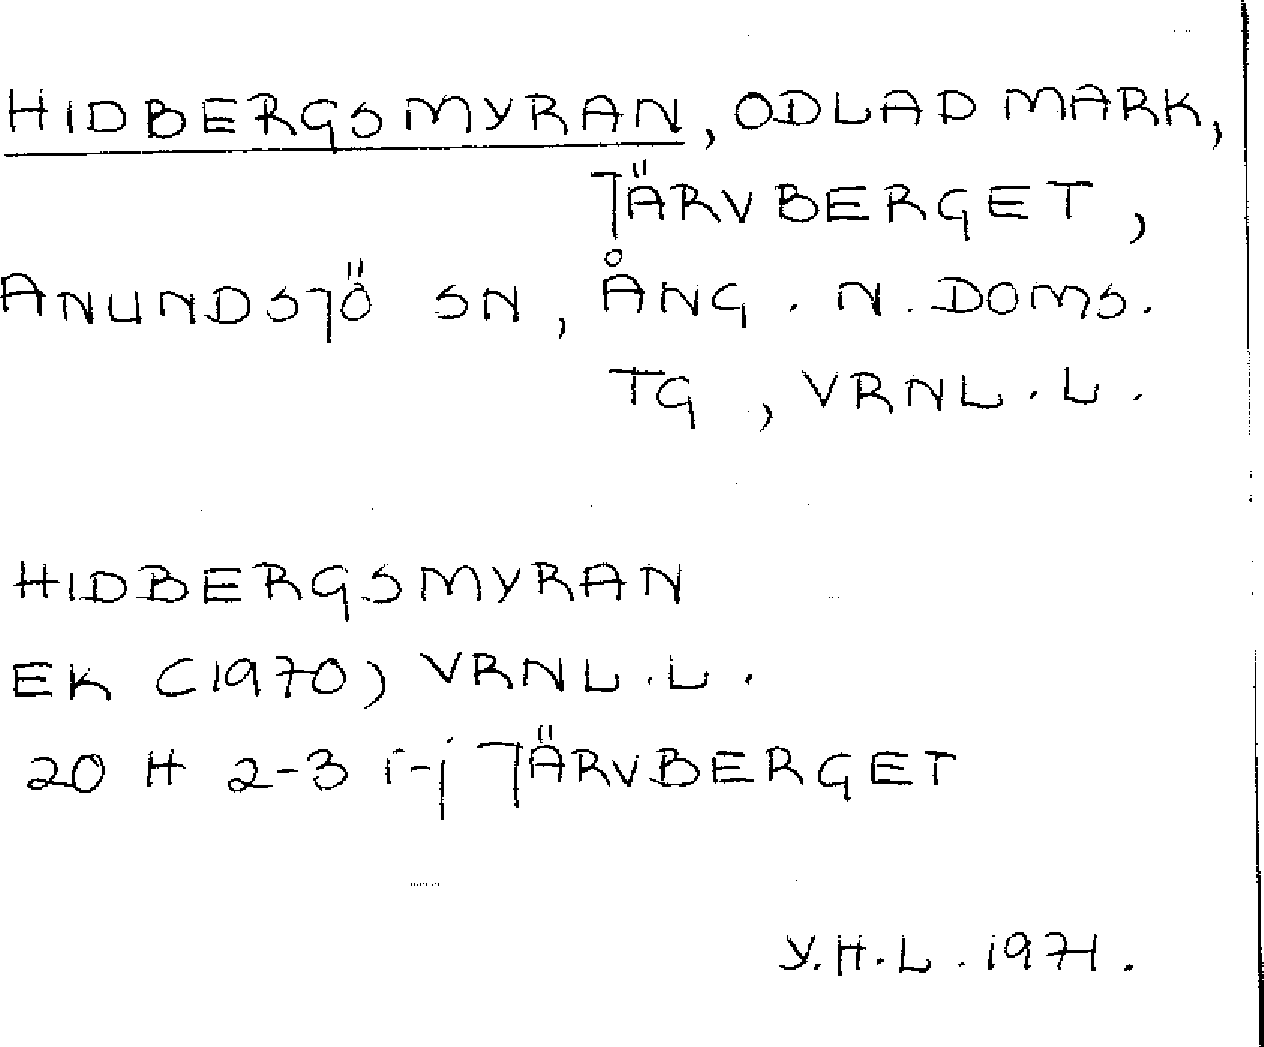 HIDBERGSMYRAN, ODLAD MARK,
JÄRVBERGET,
ANUNDSJÖ SN, ÅNG. N. DOMS.
TG, VRNL.L.
HIDBERGSMYRAN
EK (1970) VRNL.L.
20 H 2-3 i-j JÄRVBERGET
Y.H.L. 1971.